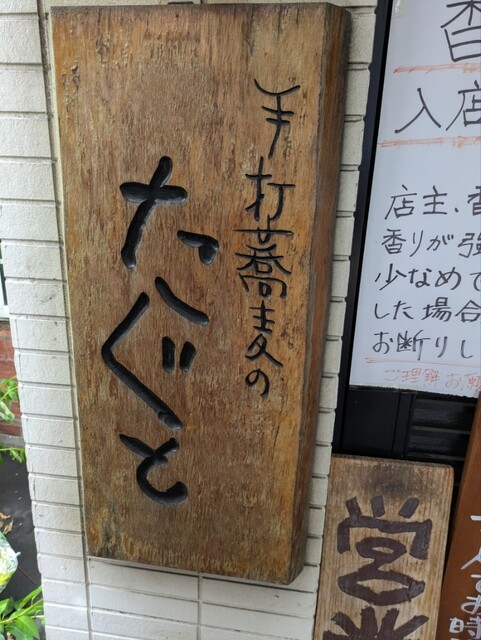 手打蕎麦の
たぐと
香
入店
店主、香
香りが強
少なめで
した場合
お断りし
ご理解お願
営業